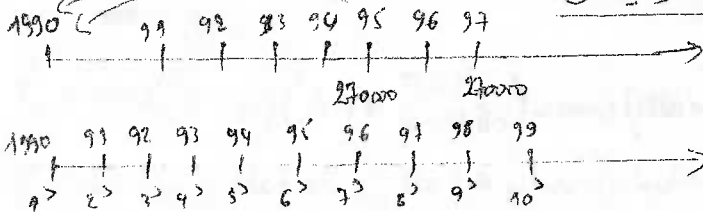 1990 91 92 93 94 95 96 97
270000 270000
1990 91 92 93 94 95 96 97 98 99
1> 2> 3> 4> 5> 6> 7> 8> 9> 10>